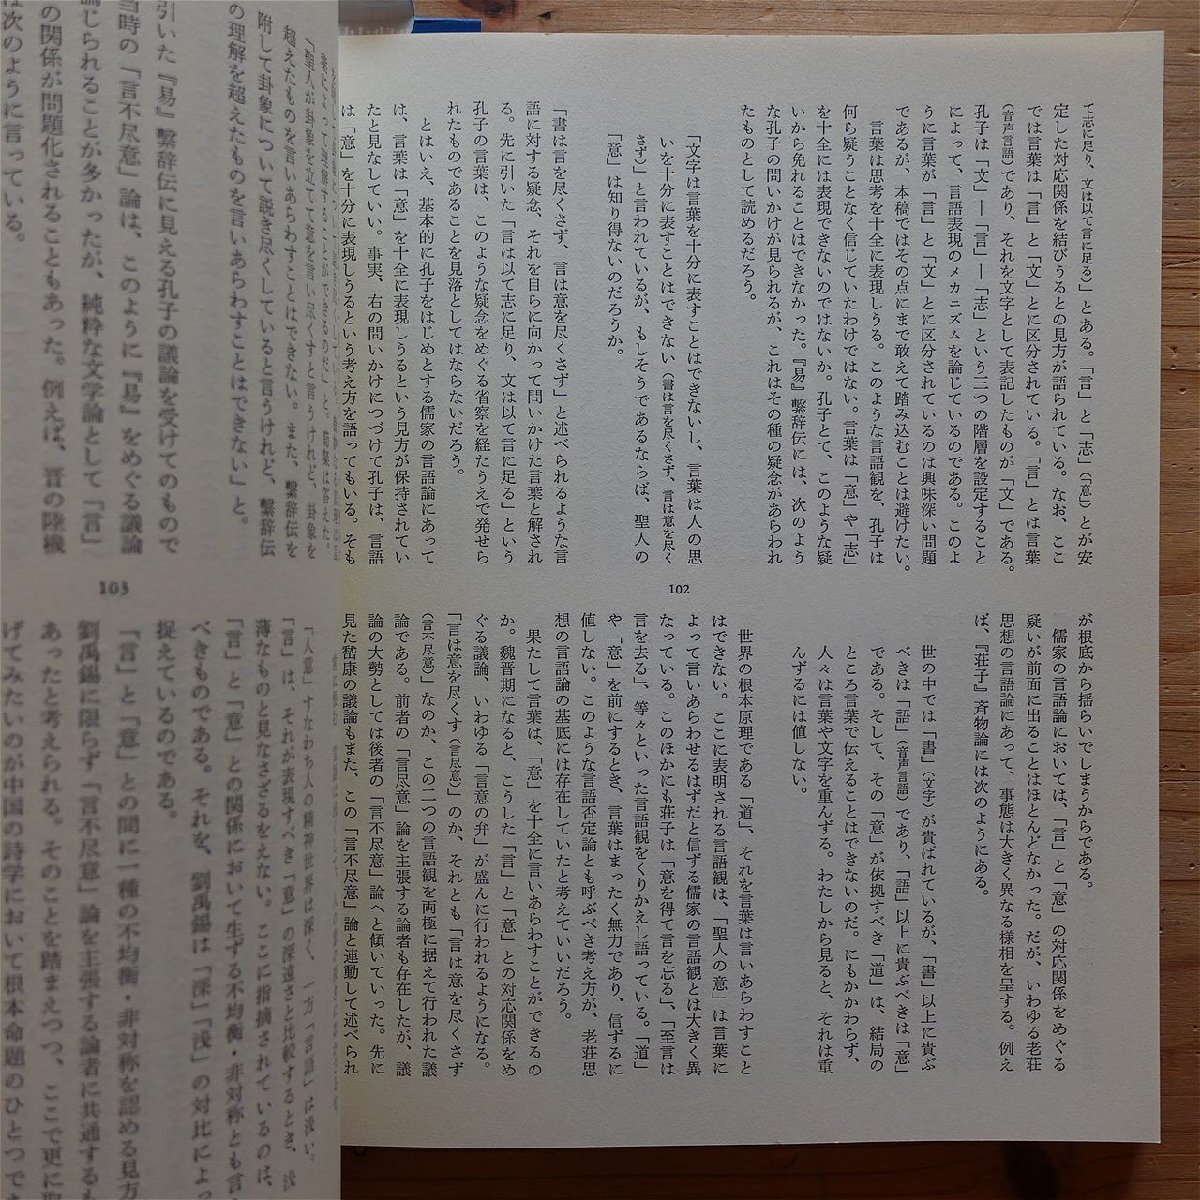 て志に足り、文は以て言に足る」とある。「言」と「志」（「意」）とが安
定した対応関係を結びうるとの見方が語られている。なお、ここ
では言葉は「言」と「文」とに区分されている。「言」とは言葉
（音声言語）であり、それを文字として表記したものが「文」である。
孔子は「文」―「言」―「志」という三つの階層を設定すること
によって、言語表現のメカニズムを論じているのである。このよ
うに言葉が「言」と「文」とに区分されているのは興味深い問題
であるが、本稿ではその点にまで敢えて踏み込むことは避けたい。
言葉は思考を十全に表現しうる。このような言語観を、孔子は
何ら疑うことなく信じていたわけではない。言葉は「意」や「志」
を十全には表現できないのではないか。孔子とて、このような疑
いから免れることはできなかった。『易』繫辞伝には、次のよう
な孔子の問いかけが見られるが、これはその種の疑念があらわれ
たものとして読めるだろう。
「文字は言葉を十分に表すことはできないし、言葉は人の思
いを十分に表すことはできない（書は言を尽くさず、言は意を尽く
さず）」と言われているが、もしそうであるならば、聖人の
「意」は知り得ないのだろうか。
「書は言を尽くさず、言は意を尽くさず」と述べられるような言
語に対する疑念、それを自らに向かって問いかけた言葉と解され
る。先に引いた「言は以て志に足り、文は以て言に足る」という
孔子の言葉は、このような疑念をめぐる省察を経たうえで発せら
れたものであることを見落としてはならないだろう。
とはいえ、基本的に孔子をはじめとする儒家の言語論にあって
は、言葉は「意」を十全に表現しうるという見方が保持されてい
たと見なしていい。事実、右の問いかけにつづけて孔子は、言語
は「意」を十分に表現しうるという考え方を語ってもいる。そも
102
が根底から揺らいでしまうからである。
儒家の言語論においては、「言」と「意」の対応関係をめぐる
疑いが前面に出ることはほとんどなかった。だが、いわゆる老荘
思想の言語論にあって、事態は大きく異なる様相を呈する。例え
ば、『荘子』斉物論には次のようにある。
世の中では「書」（文字）が貴ばれているが、「書」以上に貴ぶ
べきは「語」（音声言語）であり、「語」以上に貴ぶべきは「意」
である。そして、その「意」が依拠すべき「道」は、結局の
ところ言葉で伝えることはできないのだ。にもかかわらず、
人々は言葉や文字を重んずる。わたしから見ると、それは重
んずるには値しない。
世界の根本原理である「道」、それを言葉は言いあらわすこと
はできない。ここに表明される言語観は、「聖人の意」は言葉に
よって言いあらわせるはずだと信ずる儒家の言語観とは大きく異
なっている。このほかにも荘子は「意を得て言を忘る」、「至言は
言を去る」、等々といった言語観をくりかえし語っている。「道」
や「意」を前にするとき、言葉はまったく無力であり、信ずるに
値しない。このような言語否定論とも呼ぶべき考え方が、老荘思
想の言語論の基底には存在していたと考えていいだろう。
果たして言葉は、「意」を十全に言いあらわすことができるの
か。魏晋期になると、こうした「言」と「意」との対応関係をめ
ぐる議論、いわゆる「言意の弁」が盛んに行われるようになる。
「言は意を尽くす（言尽意）」のか、それとも「言は意を尽くさず
（言不尽意）」なのか、この二つの言語観を両極に据えて行われた議
論である。前者の「言尽意」論を主張する論者も存在したが、議
論の大勢としては後者の「言不尽意」論へと傾いていった。先に
見た嵆康の議論もまた、この「言不尽意」論と連動して述べられ
「聖人が卦象を立てて意を言い尽くすと言うけれど、卦象を
超えたものを言いあらわすことはできない。また、繫辞伝を
附して卦象について説き尽くしていると言うけれど、繫辞伝
の理解を超えたものを言いあらわすことはできない」と。
引いた『易』繫辞伝に見える孔子の議論を受けてのもので
当時の「言不尽意」論は、このように『易』をめぐる議論
論じられることが多かったが、純粋な文学論として「言」
の関係が問題化されることもあった。例えば、晋の陸機
は次のように言っている。
103
「人意」すなわち人の精神世界は深く、一方「言語」は浅い。
「言」は、それが表現すべき「意」の深遠さと比較するとき、浅
薄なものと見なさざるをえない。ここに指摘されているのは、
「言」と「意」との関係において生ずる不均衡・非対称とも言
べきものである。それを、劉禹錫は「深」「浅」の対比によっ
捉えているのである。
「言」と「意」との間に一種の不均衡・非対称を認める見方
劉禹錫に限らず「言不尽意」論を主張する論者に共通するも
あったと考えられる。そのことを踏まえつつ、ここで更に
げてみたいのが中国の詩学において根本命題のひとつでも